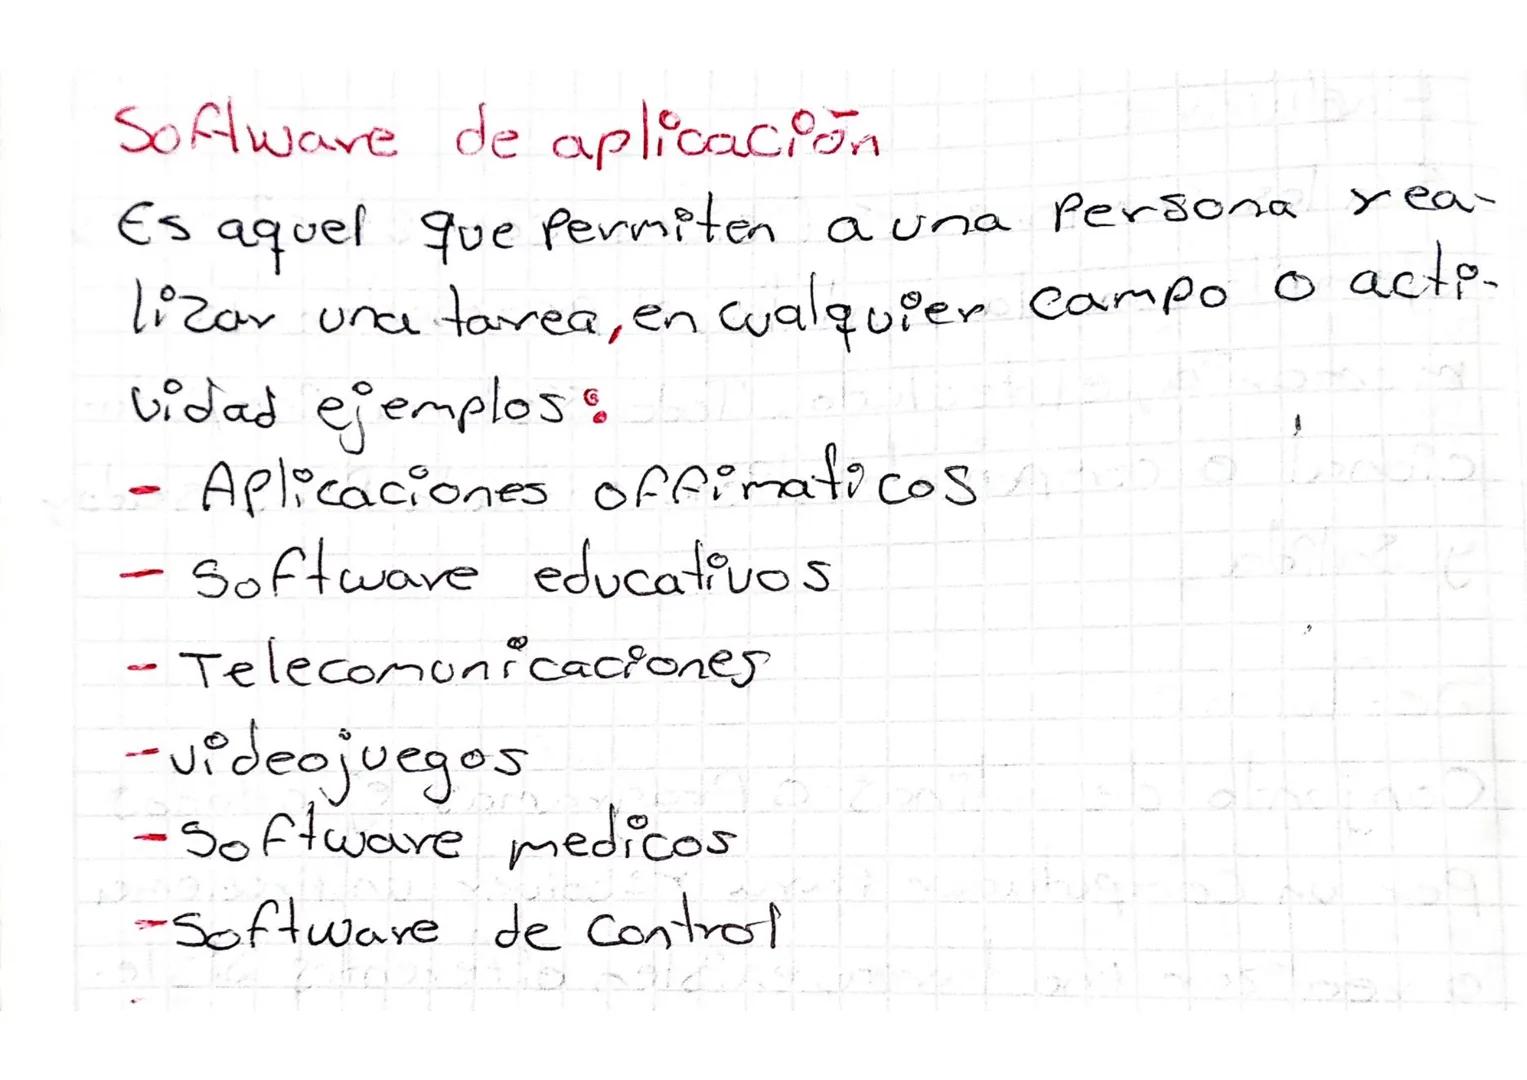 Software de aplicación
Es aquel que permiten a una persona rea-
lizar una tarea, en cualquier campo o acti-
vidad ejemplos:
- Aplicaciones offimaticos
- Software educativos
- Telecomunicaciones
- videojuegos
- Software medicos
- Software de control